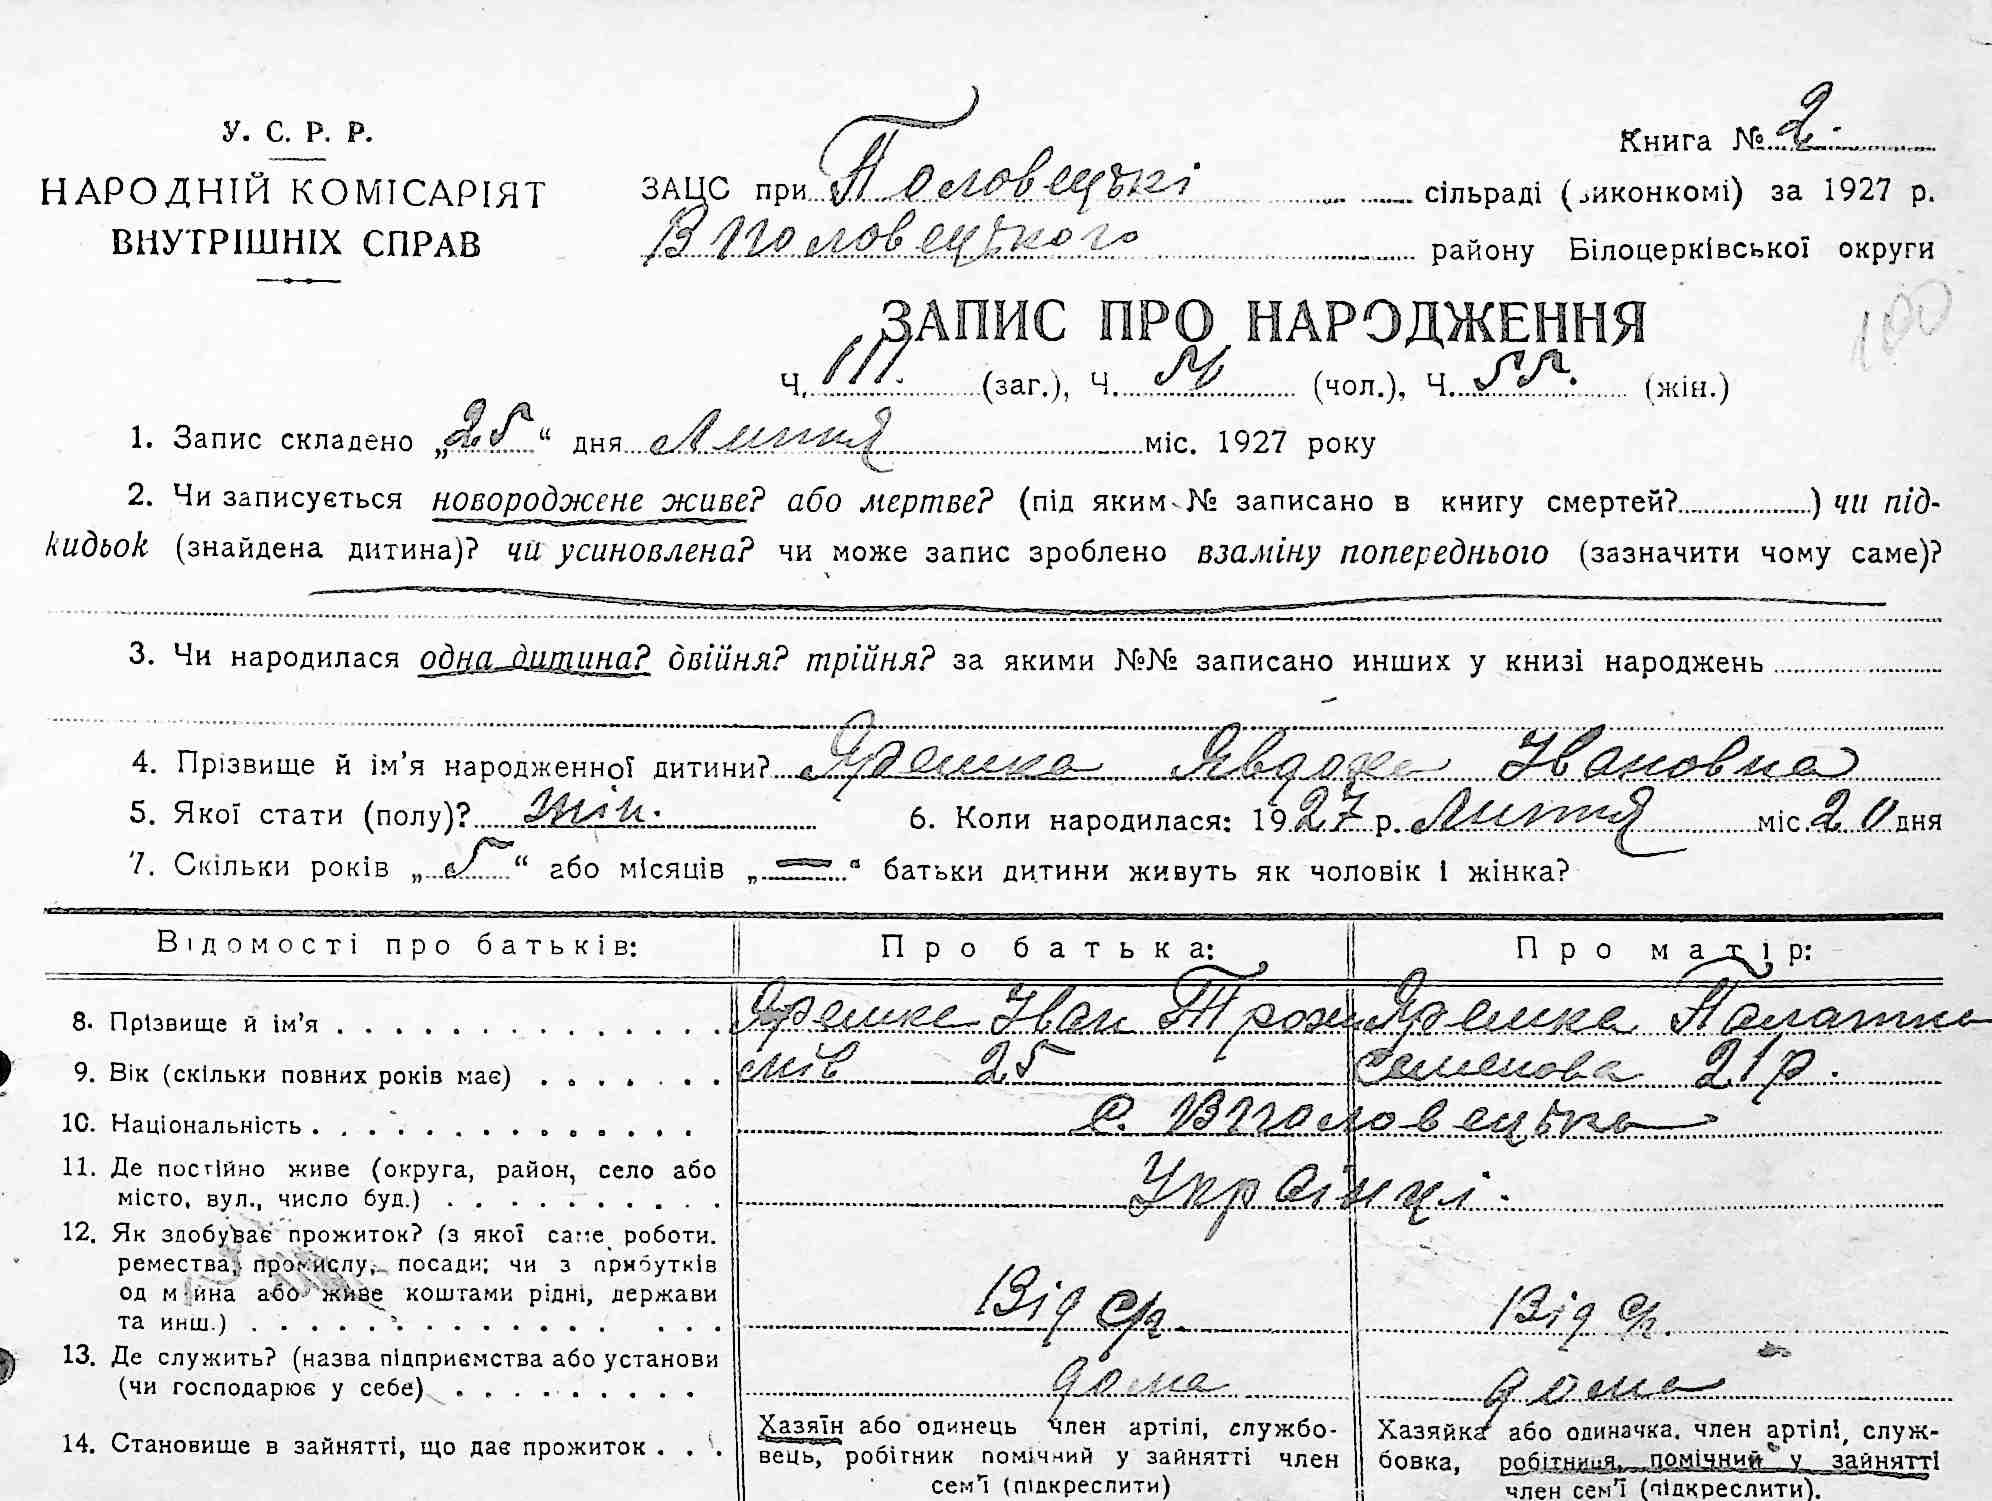 У. С. Р. Р.
НАРОДНІЙ КОМІСАРІЯТ
ВНУТРІШНІХ СПРАВ
Книга № 2.
ЗАЦС при Половецькі сільраді (виконкомі) за 1927 р.
В Половецького району Білоцерківської округи
100
ЗАПИС ПРО НАРОДЖЕННЯ
Ч. 111. (заг.), Ч. (чол.), Ч. 55. (жін.)
1. Запис складено „25“ дня Липня міс. 1927 року
2. Чи записується новороджене живе? або мертве? (під яким № записано в книгу смертей? ) чи під-
кидьок (знайдена дитина)? чи усиновлена? чи може запис зроблено взаміну попереднього (зазначити чому саме)?
3. Чи народилася одна дитина? двійня? трійня? за якими №№ записано инших у книзі народжень
4. Прізвище й ім’я народженної дитини? Ярешка Явдоха Івановна
5. Якої стати (полу)? жін. 6. Коли народилася: 1927 р. Липня міс. 20 дня
7. Скільки років „5“ або місяців „—“ батьки дитини живуть як чоловік і жінка?
Відомості про батьків: Про батька: Про матір:
8. Прізвище й ім’я Ярешка Іван Трохи Ярешка Палажка
9. Вік (скільки повних років має) мів 25 семенова 21 р.
10. Національність с. В Половецька
11. Де постійно живе (округа, район, село або
місто, вул., число буд.) Українці.
12. Як здобуває прожиток? (з якої саме роботи.
ремества, промислу, посади; чи з прибутків
од майна або живе коштами рідні, держави
та инш.) Від с/г. Від с/г.
13. Де служить? (назва підприємства або установи
(чи господарює у себе) дома дома
14. Становище в зайнятті, що дає прожиток
Хазяїн або одинець член артілі, службо-
вець, робітник помічний у зайнятті член
сем’ї (підкреслити)
Хазяйка або одиначка, член артілі, служ-
бовка, робітниця, помічний у зайнятті
член сем’ї (підкреслити).